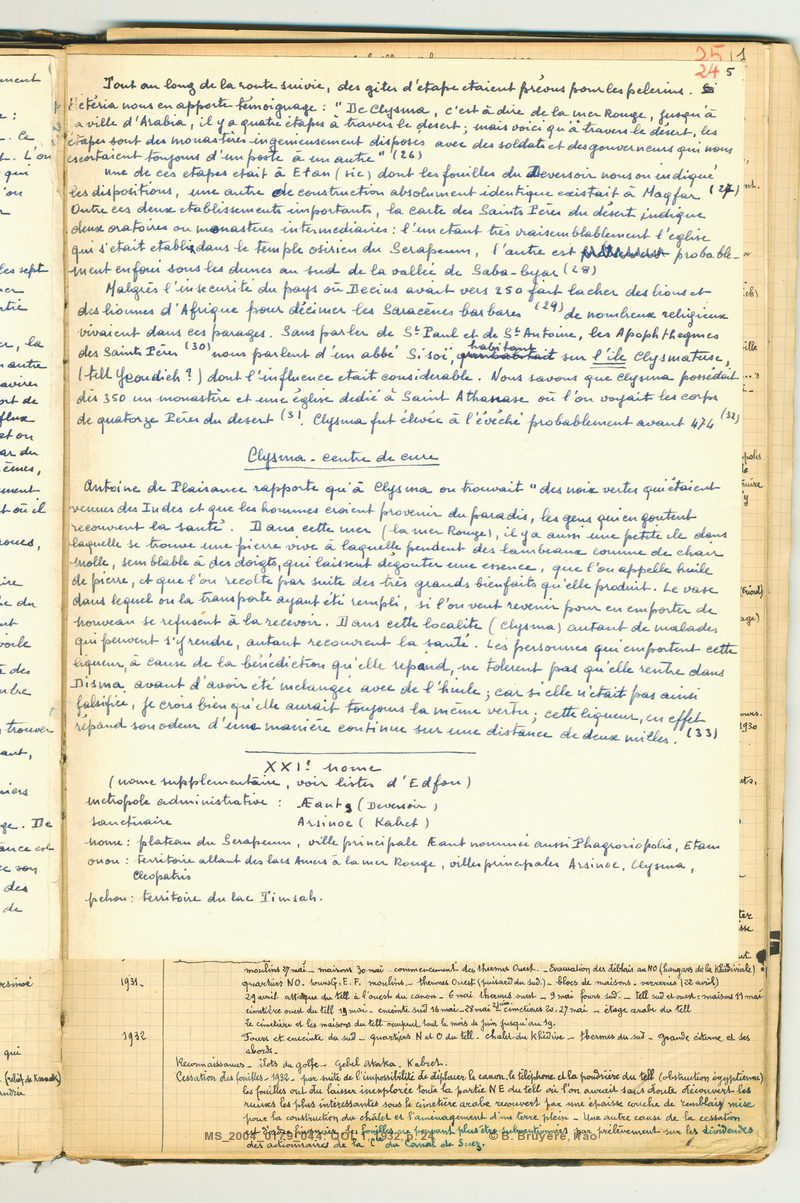 25 1
24 5
Tout au long de la route suivie, des gites d'etape etaient prévus pour les pelerins.
Etéria nous en apporte témoignage : " De Clysma, c'est à dire de la mer Rouge, jusqu'à
la ville d'Arabia, il y a quatre étapes à travers le desert ; mais voici qu'à travers le désert, les
étapes sont des monastères ingenieusement disposés avec des soldats et des gouverneurs qui nous
escortaient toujours d'un poste à un autre" (26)
Une de ces étapes etait à Etan (sic) dont les fouilles du Deversoir nous on indiqué
les dispositions, une autre de construction absolument identique existait à Magfar (27)
Outre ces deux etablissements importants, la carte des Saints Pères du désert indique
deux oratoires ou monastères intermediaires : l'un etant très vraisemblablement l'église
qui s'etait etablie dans le temple osirien du Serapeum, l'autre est probable-
ment enfoui sous les dunes au sud de la vallée de Saba-byar (28)
Malgrès l'insecurité du pays où Decius avait vers 250 fait lacher des lions et
des lionnes d'Afrique pour décimer les Saracènes barbares (29) de nombreux religieux
vivaient dans ces parages. Sans parler de St Paul et de St Antoine, les Apophthegmes
des Saints Pères (30) nous parlent d'un abbé Sisoï, habitant sur l'ile Clysmatuse,
(tell Yeoudieh ?) dont l'influence etait considerable. Nous savons que Clysma possédait
dès 350 un monastère et une église dedié à Saint Athanase où l'on voyait les corps
de quatorze Pères du desert (31. Clysma fut élevée à l'évêché probablement avant 474 (32)
Clysma - centre de cure
Antoine de Plaisance rapporte qu'à Clysma on trouvait " des noix vertes qui étaient
venues des Indes et que les hommes croient provenir du paradis, les gens qui en goutent
recouvrent la santé. Dans cette mer (la mer Rouge), il y a aussi une petite ile dans
laquelle se trouve une pierre vive à laquelle pendent des lambeaux comme de chair
molle, semblable à des doigts, qui laissent degouter une essence, que l'on appelle huile
de pierre, et que l'on recolte par suite des très grands bienfaits qu'elle produit. Le vase
dans lequel on la transporte ayant été rempli, si l'on veut revenir pour en emporter de
nouveau se refusent à la recevoir. Dans cette localité (Clysma) autant de malades
qui peuvent s'y rendre, autant recouvrent la santé. Les personnes qui emportent cette
liqueur, à cause de la bénédiction qu'elle repand, ne tolerent pas qu'elle rentre dans
Disma avant d'avoir été melangée avec de l'huile ; car si elle n'était pas ainsi
falsifiée, je crois bien qu'elle aurait toujours la même vertu ; cette liqueur, en effet
répand son odeur d'une manière continue sur une distance de deux milles. (33)
XXIe nome
(nome supplementaire, voir listes d'Edfou)
métropole administrative : Æant (Deversoir)
sanctuaire Arsinoe (Kabret)
nome : plateau du Serapeum, ville principale Æant nommée aussi Phagroriopolis, Etam
ouou : territoire allant des lacs Amers à la mer Rouge, villes principales Arsinoe, Clysma,
Cleopatris
pehou : territoire du lac Timsah.
moulins 27 mai - maisons 30 mai - commencement des thermes Ouest. - Evacuation des déblais au NO (hangars de la Khédiviale)
1931 quartiers NO. tours G. E. F. moulins - thermes Ouest (puisard du sud). - blocs de maisons - verreries (22 avril)
29 avril attaque du tell à l'ouest du canon - 6 mai thermes ouest - 9 mai fours sud. - tell sud et ouest : maisons 11 mai
cimetière ouest du tell 19 mai - enceinte sud 16 mai - 28 mai 2ème cimetières 20, 27 mai - étage arabe du tell
le cimetière et les maisons du tell occupent tout le mois de juin jusqu'au 19.
1932 Fours et enceinte du sud - quartiers N et O du tell - chalet du Khédive - thermes du sud - grande citerne et ses
abords.
Reconnaissances - ilots du golfe - Gebel Ataka, Kabret.
Cessation des fouilles - 1932 - par suite de l'impossibilité de déplacer le canon, le téléphone et la poudrière du tell (obstruction égyptienne)
les fouilles ont du laisser inexplorée toute la partie NE du tell où l'on aurait sans doute découvert les
ruines les plus intéressantes sous le cimetière arabe recouvert par une épaisse couche de remblais mise
pour la construction du châlet et l'aménagement d'un terre plein - Une autre cause de la cessation
est d'ordre financier, les fouilles ne pouvant plus être subventionnées par prélèvement sur les dividendes
des actionnaires de la Cie du Canal de Suez.
MS_2004_0179_044: COL 1, 1932, p. 24 © B. Bruyère, Ifao